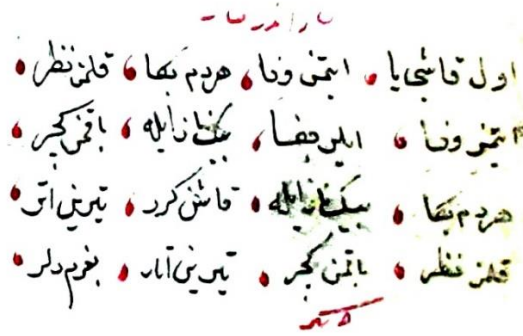 اول قاشی یا ایتمز وفا هردم بکا قلمز نظر
ایتمز وفا ایلر جفا بیک ناز ایله باقمز کچر
هردم بکا بیک ناز ایله قاشن کرر تیرین اتر
قلمز نظر باقمز کچر تیرین آتار بغرم دلر